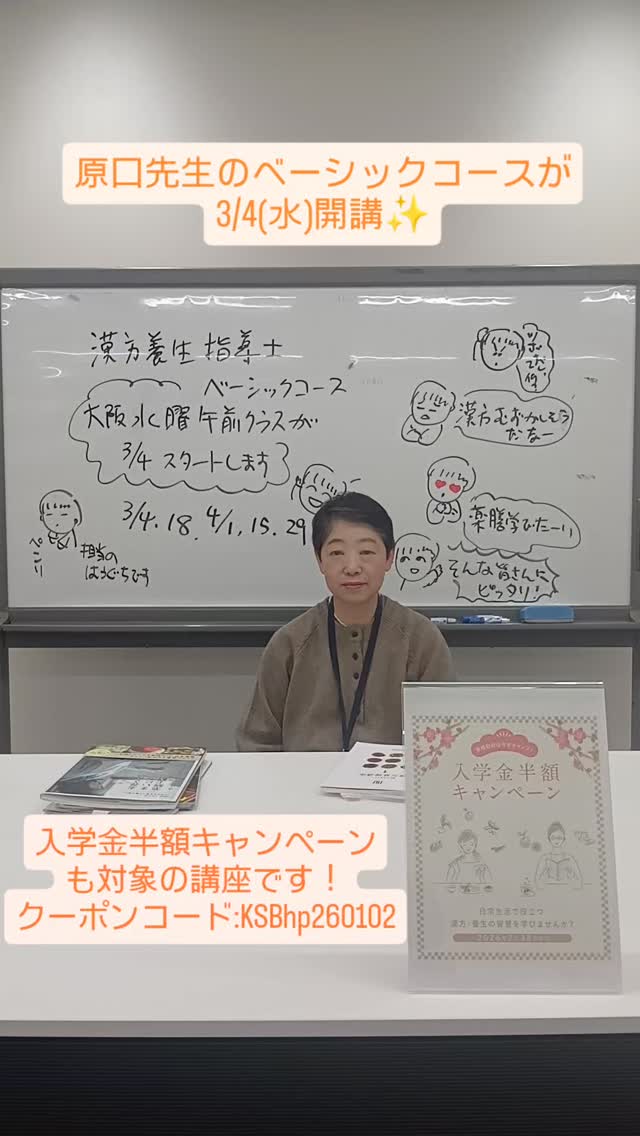 原口先生のベーシックコースが
3/4(水)開講✨
漢方養生指導士
ベーシックコース
大阪水曜午前クラスが
3/4 スタートします
3/4. 18. 4/1, 15. 29
ぺこり
担当の
はらぐちです
漢方むずかしそう
だなー
薬膳学びたーい
そんな皆さんに
ピッタリ!
入学金半額
キャンペーン
日常生活で役立つ
漢方・養生の智慧を学びませんか?
入学金半額キャンペーン
も対象の講座です!
クーポンコード:KSBhp260102